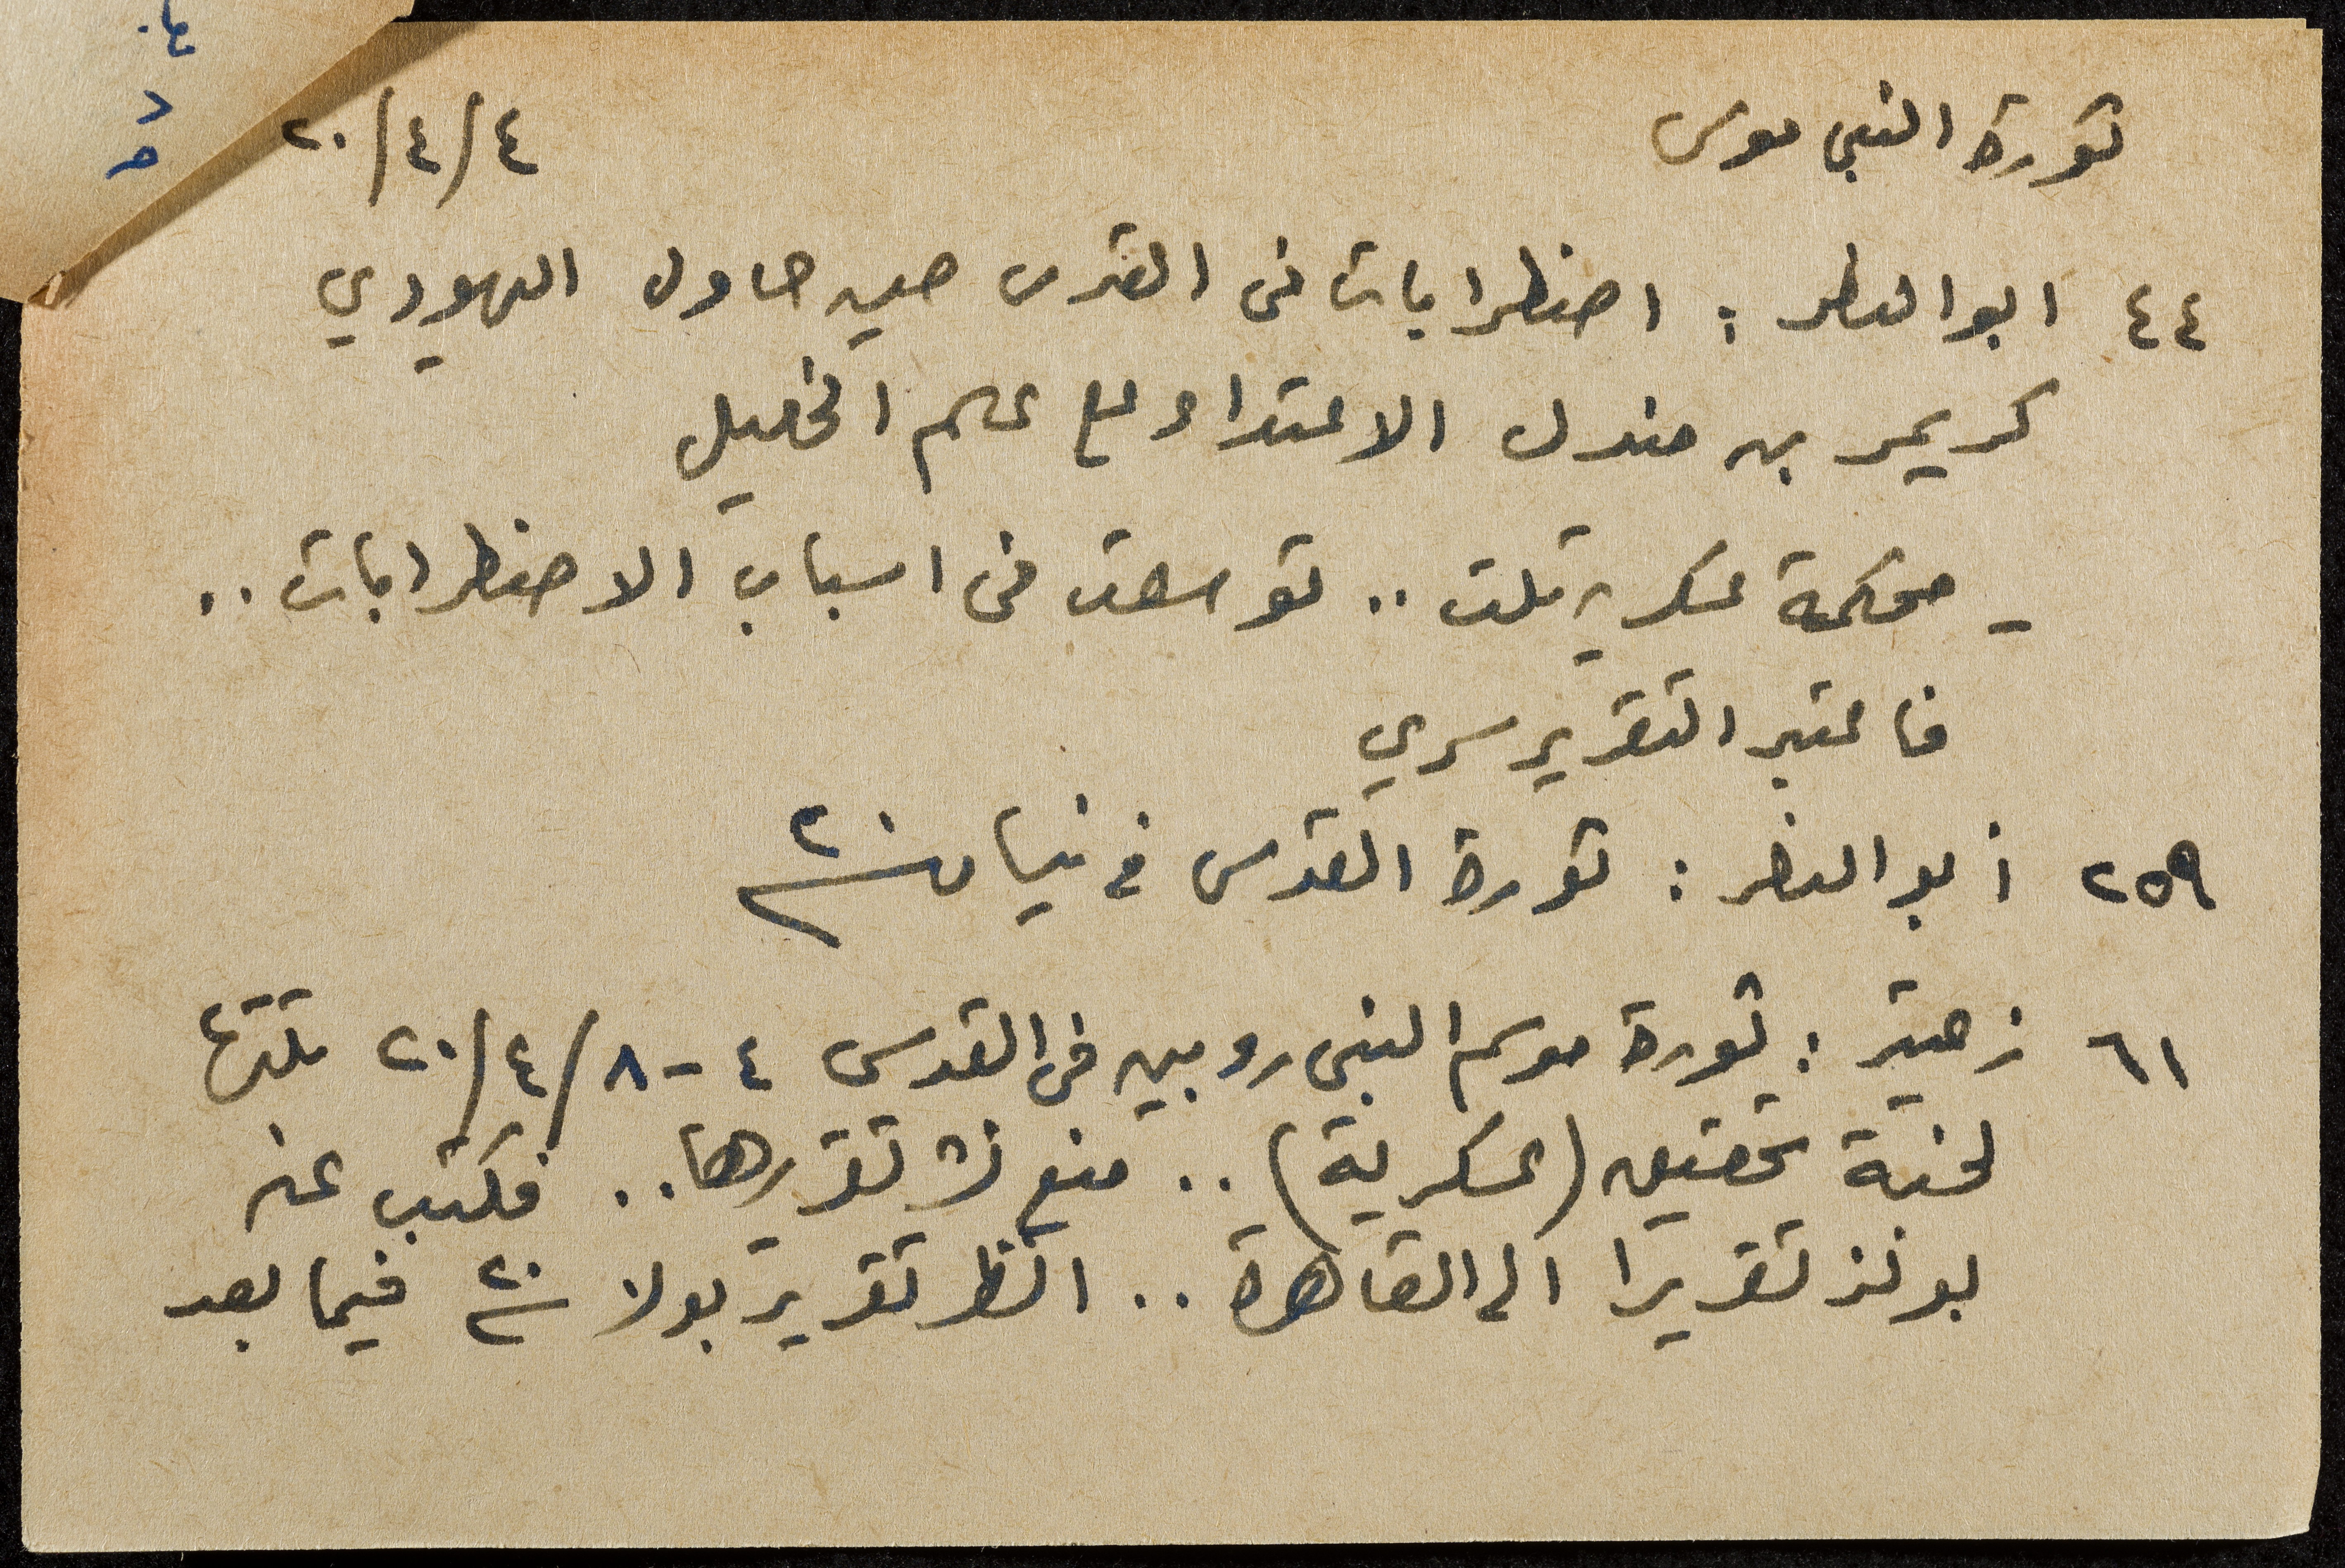 ثورة النبي موسى ٤/٤/٢٠
٤٤ ابو النصر : اضطرابات في القدس حين حاول اليهودي
كريمر بن مندل الاعتداء على علم الخليل
- محكمة عسكرية تلت .. توسعت في اسباب الاضطرابات ..
فاعتبر التقرير سري
٢٥٩ أبو النصر : ثورة القدس في نيسان ٢٠
٦١ زعيتر : ثورة موسم النبي روبين في القدس ٤-٨/٤/٢٠ تلتها
لجنة تحقيق (عسكرية) .. منع نشر تقريرها .. فكتب عنه
بولز تقريرا الى القاهرة .. انظر تقرير بولز ٢٠ فيما بعد